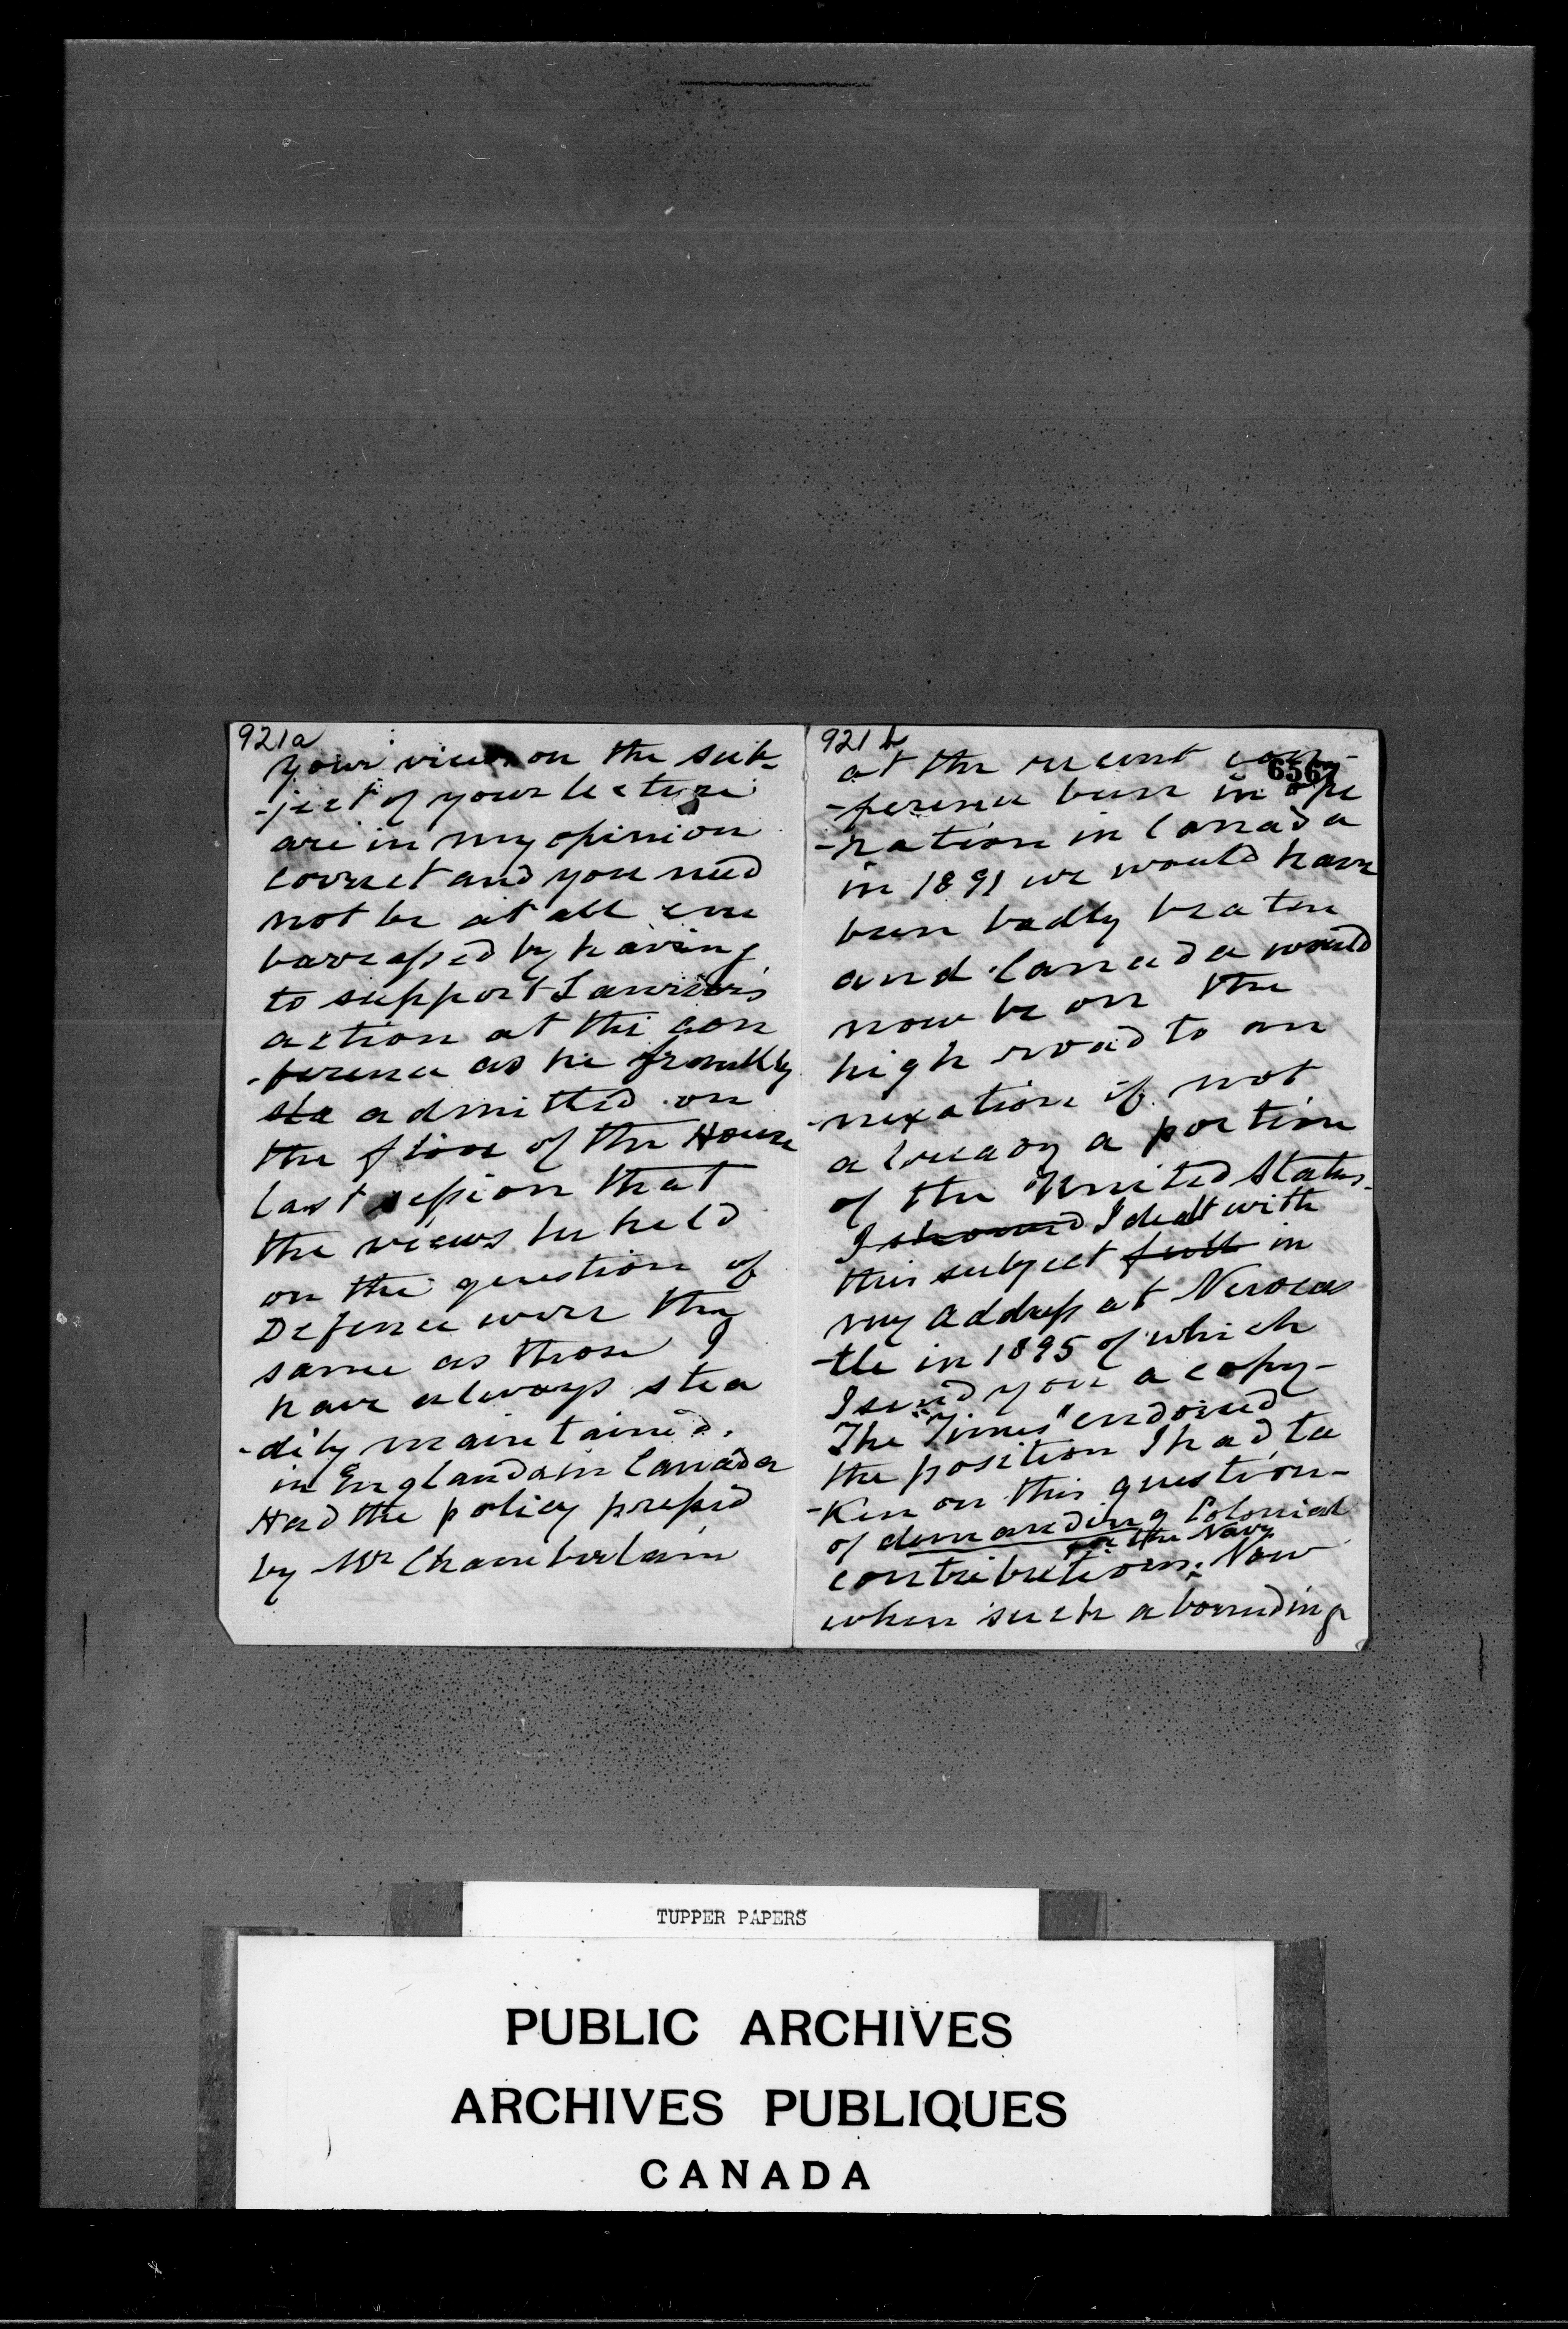 921a
your views on the sub-
-ject of your lecture
are in my opinion
correct and you need
not be at all em
barrassed by having
to support Laurier's
action at the con
-ference as he frankly
sta admitted on
the floor of the House
last session that
the views he held
on the question of
Defence were the
same as those I
have always stea
-dily maintained.
in England & in Canada
Had the policy pressed
by Mr Chamberlain
921 b
6567
at the recent con-
-ference been in ope
-ration in Canada
in 1891 we would have
been badly beaten
and Canada would
now be on the
high road to an
-nexation if not
already a portion
of the United States.
I showed I dealt with
this subject full in
my address at Newcas
-tle in 1895 of which
I send you a copy-
The "Times" endorsed
the position I had ta
-ken on this question-
of demanding Colonial
for the Navy
contributions. Now
when such a bounding
TUPPER PAPERS
PUBLIC ARCHIVES
ARCHIVES PUBLIQUES
CANADA